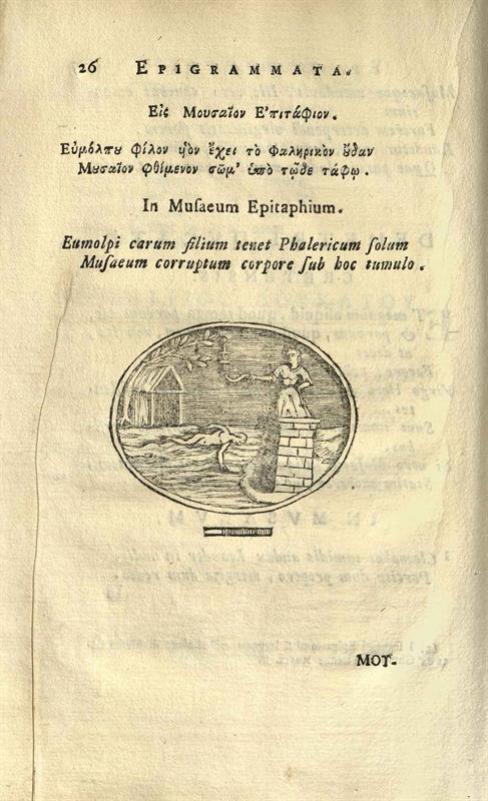 26 EPIGRAMMATA.
Εἰς Μουσαῖον Ε'πιτάφιον.
Εὐμόλπȣ φίλον ὑὸν ἔχει τὸ Φαληρικὸν ȣ̓͂δαν
Μȣσαῖον φθίμενον σῶμ' ὑπὸ τῷδε τάφῳ.
In Muſaeum Epitaphium.
Eumolpi carum filium tenet Phalericum ſolum
Muſaeum corruptum corpore ſub hoc tumulo.
ΜΟΥ-